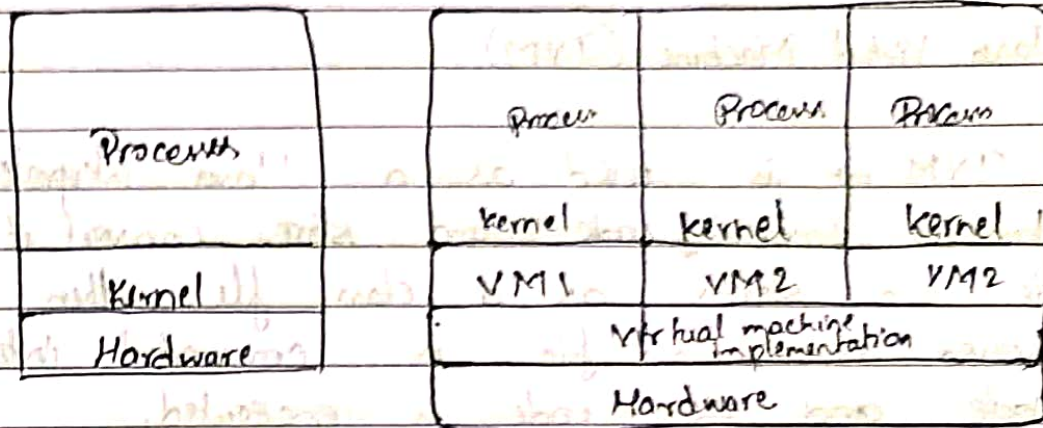 Processes
Kernel
Hardware
Process Process Process
kernel kernel kernel
VM1 VM2 VM2
Virtual machine implementation
Hardware